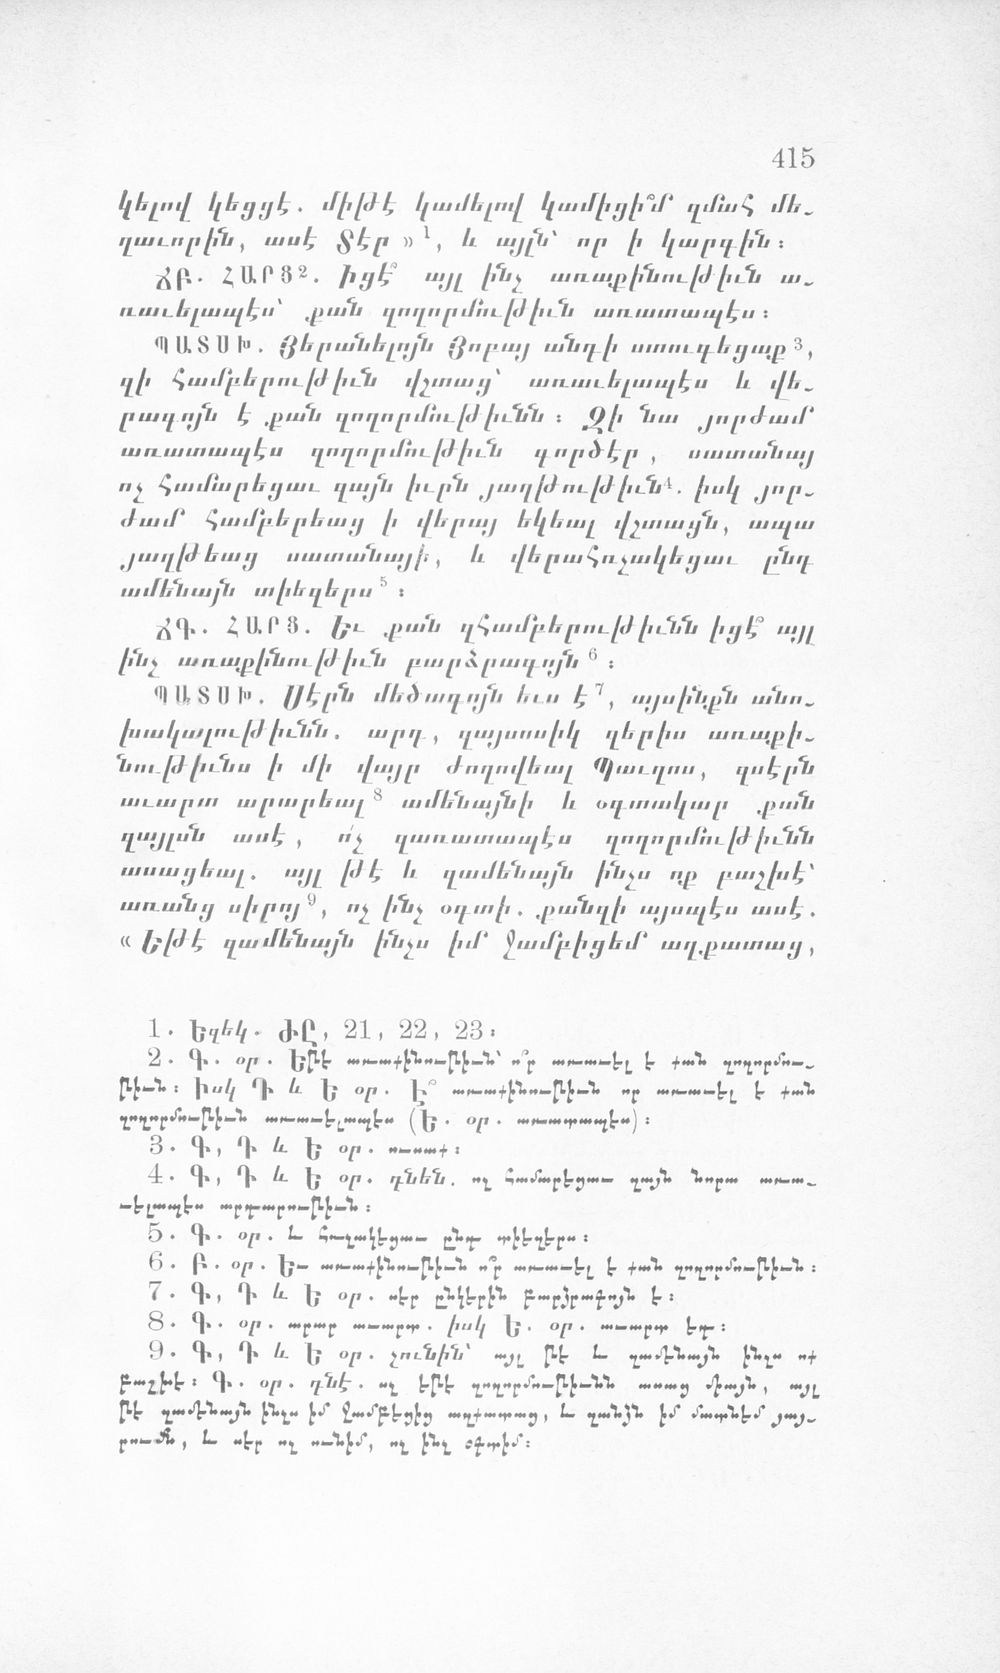 415
կելով կեցցէ. միթէ կամելով կամիցի՞մ զմահ մե-
ղաւորին, ասէ Տէր »1, և այլն՝ որ ի կարգին։
ՃԲ. ՀԱՐՑ2. Իցէ՞ այլ ինչ առաքինութիւն ա-
ռաւելապէս՝ քան զողորմութիւն առատապէս։
ՊԱՏՍԽ. Յերանելոյն Յոբայ անդի ստուգեցաք3,
զի համբերութիւն վշտաց՝ առաւելապէս և վե-
րագոյն է քան զողորմութիւնն։ Զի նա յորժամ
առատապէս զողորմութիւն գործէր, սատանայ
ոչ համարեցաւ զայն իւրն յաղթութիւն4. իսկ յոր-
ժամ համբերեաց ի վերայ եկեալ վշտացն, ապա
յաղթեաց սատանայի, և վերահռչակեցաւ ընդ
ամենայն տիեզերս5։
ՃԳ. ՀԱՐՑ. Եւ քան զհամբերութիւնն իցէ՞ այլ
ինչ առաքինութիւն բարձրագոյն6։
ՊԱՏՍԽ. Սէրն մեծագոյն ևս է7, այսինքն անո-
խակալութիւնն. արդ, զայսոսիկ զերիս առաքի-
նութիւնս ի մի վայր ժողովեալ Պաւղոս, զսէրն
աւարտ արարեալ8 ամենայնի և օգտակար քան
զայլսն ասէ, ո՛չ զառատապէս զողորմութիւնն
ասացեալ. այլ թէ և զամենայն ինչս ոք բաշխէ՝
առանց սիրոյ9, ոչ ինչ օգտի. քանզի այսպէս ասէ.
« Եթէ զամենայն ինչս իմ ջամբիցեմ աղքատաց,
1. Եզեկ. ԺԸ, 21, 22, 23։
2. Գ. օր. Եթէ առաքինութիւն՝ ո՞ր առաւել է քան զողորմու-
թիւն։ Իսկ Դ և Ե օր. Է՞ առաքինութիւն որ առաւել է քան
զողորմութիւն առաւելապէս (Ե. օր. առատապէս)։
3. Գ, Դ և Ե օր. ուսաք։
4. Գ, Դ և Ե օր. դնեն. ոչ համարեցաւ զայն նորա առա-
ւելապէս արդարութիւն։
5. Գ. օր. և հռչակեցաւ ընդ տիեզերս։
6. Բ. օր. Եւ առաքինութիւն ո՞ր առաւել է քան զողորմութիւն։
7. Գ, Դ և Ե օր. սէր ընկերին բարձրագոյն է։
8. Գ. օր. արար աւարտ. իսկ Ե. օր. աւարտ եդ։
9. Գ, Դ և Ե օր. չունին՝ այլ թէ և զամենայն ինչս ոք
բաշխէ։ Գ. օր. դնէ. ոչ եթէ զողորմութիւնն ասաց միայն, այլ
թէ զամենայն ինչս իմ ջամբեցից աղքատաց, և զանձն իմ մատնեմ յայ-
րումն, և սէր ոչ ունիմ, ոչ ինչ օգտիմ։